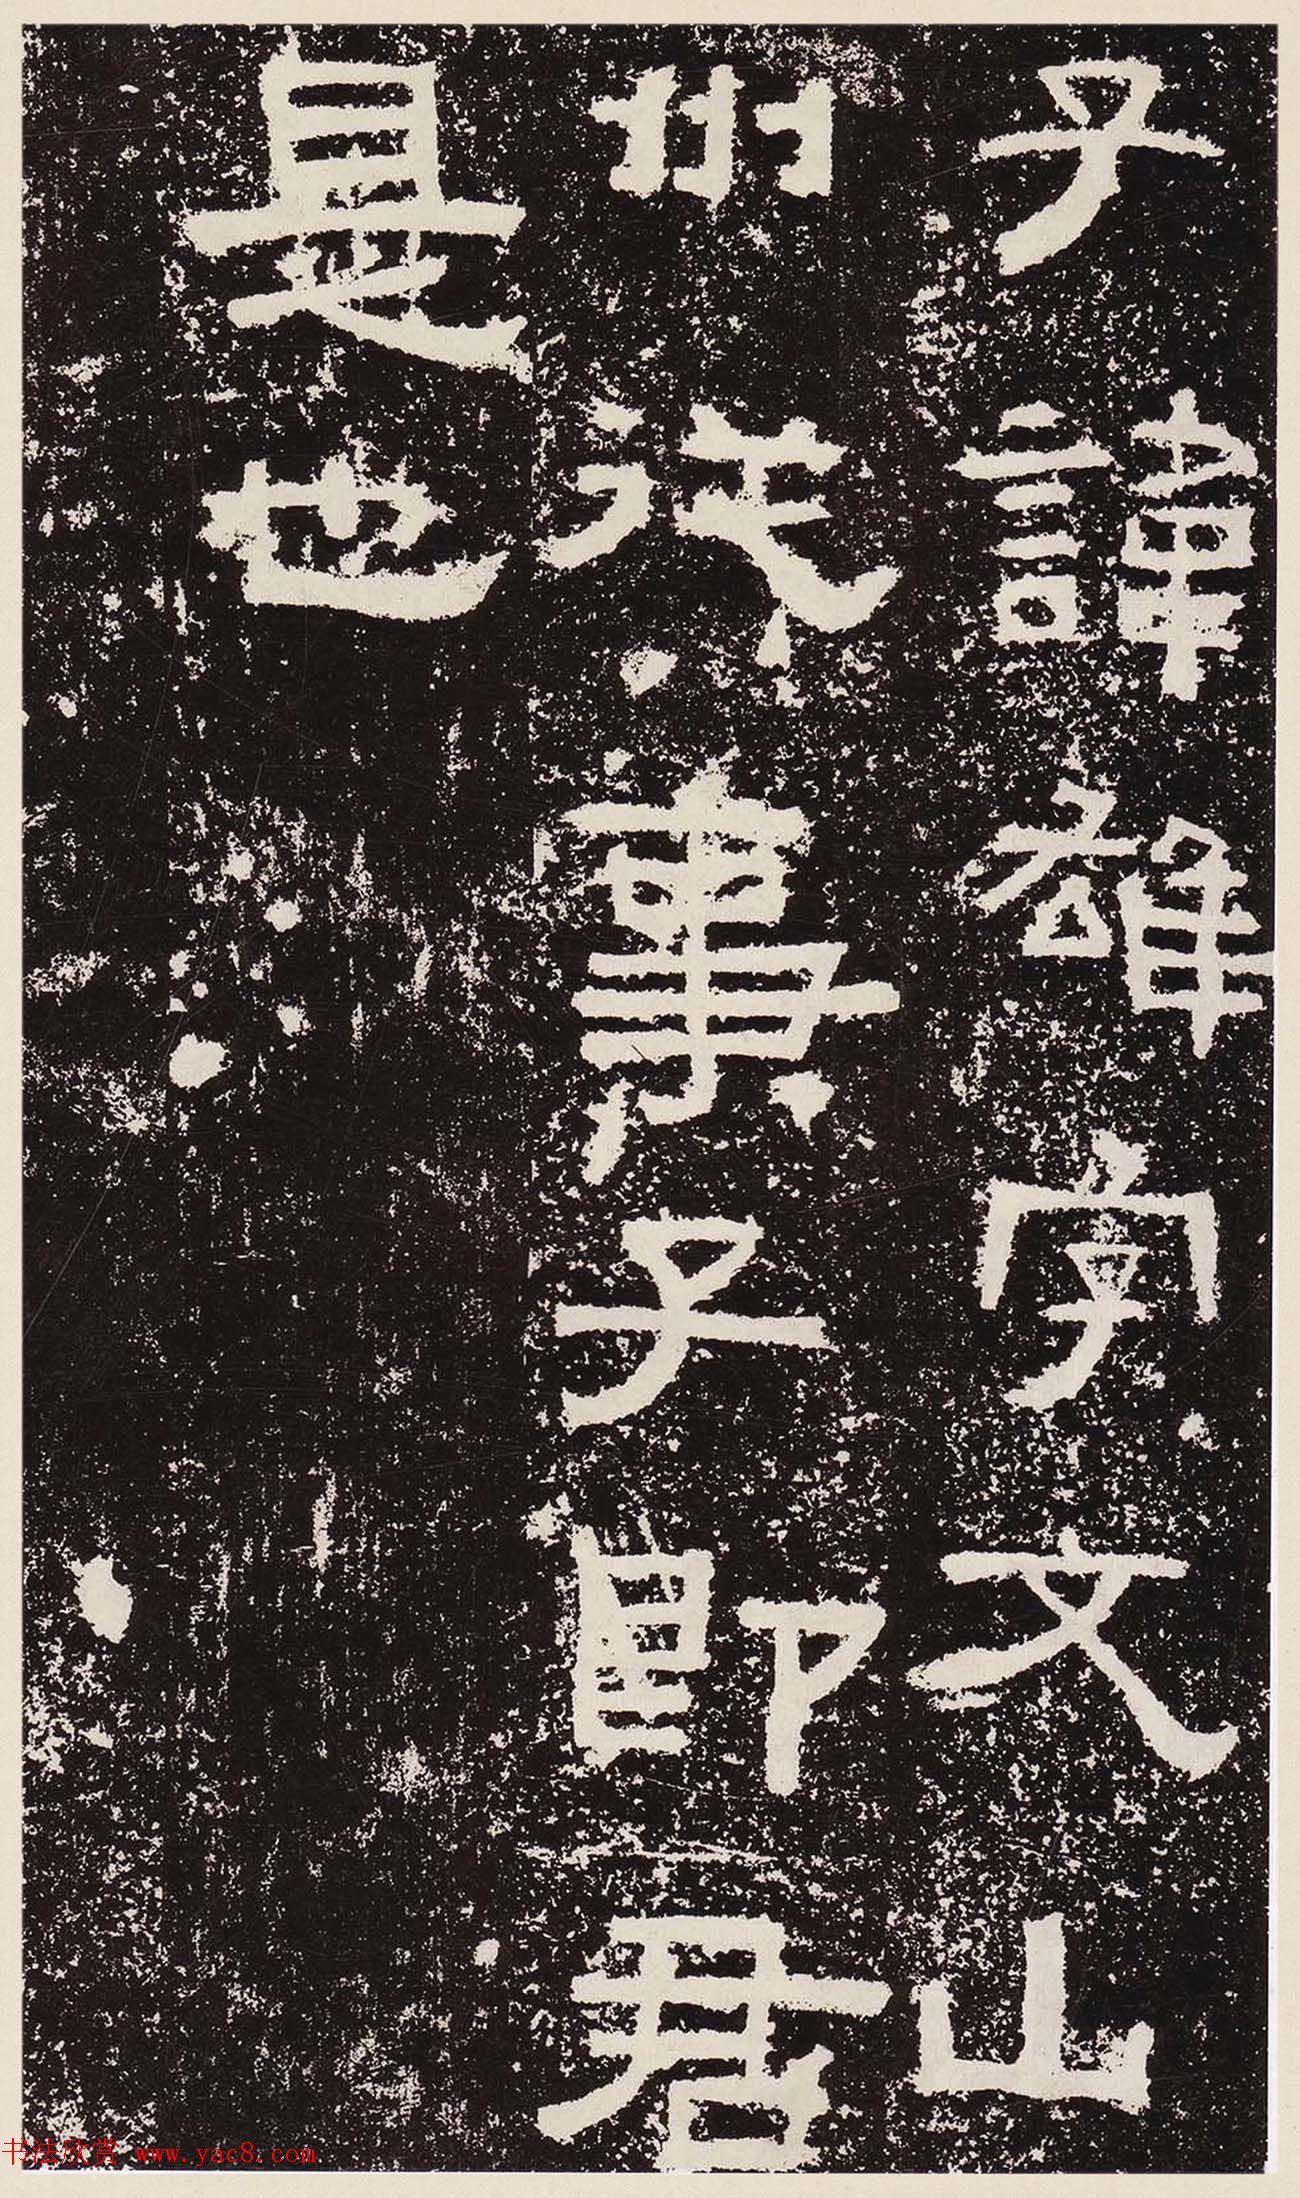 子諱雄字文山
州從事子即君
是也
书法欣赏 www.yac8.com